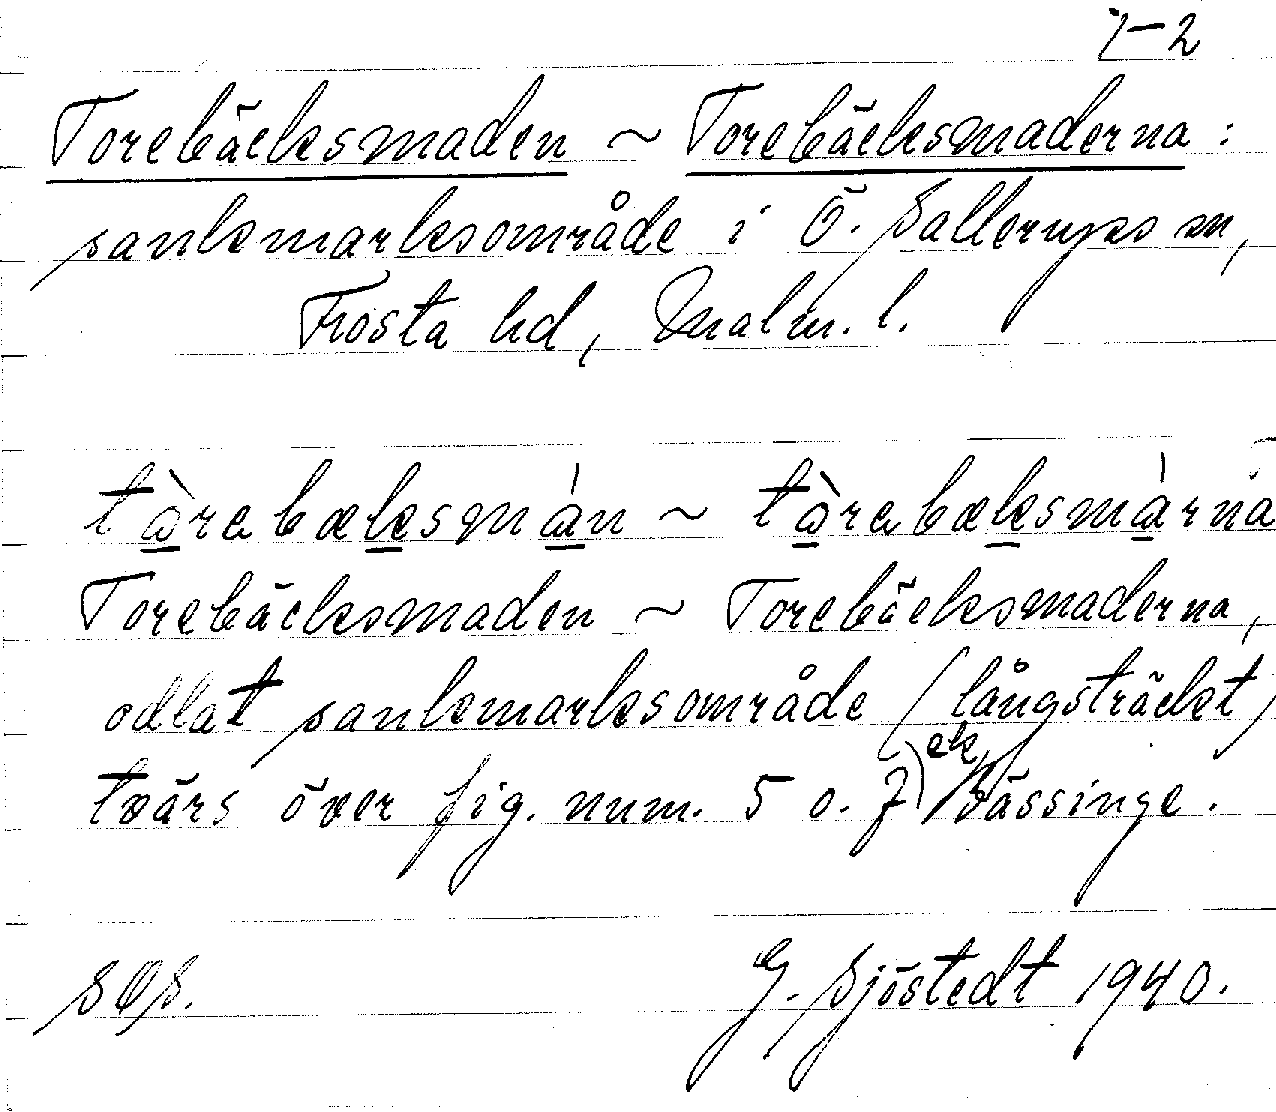 7-2
Torebäcksmaden ~ Torebäcksmaderna:
sankmarksområde i Ö. Sallerups sn,
Frosta hd, Malm. l.
tòrabæksmán ~ tòrabæksmàrna
Torebäcksmaden ~ Torebäcksmaderna,
odlat sankmarksområde (långsträckt)
tvärs över fig. num. 5 o. 7) ek, Vässinge.
G. Sjöstedt 1940.